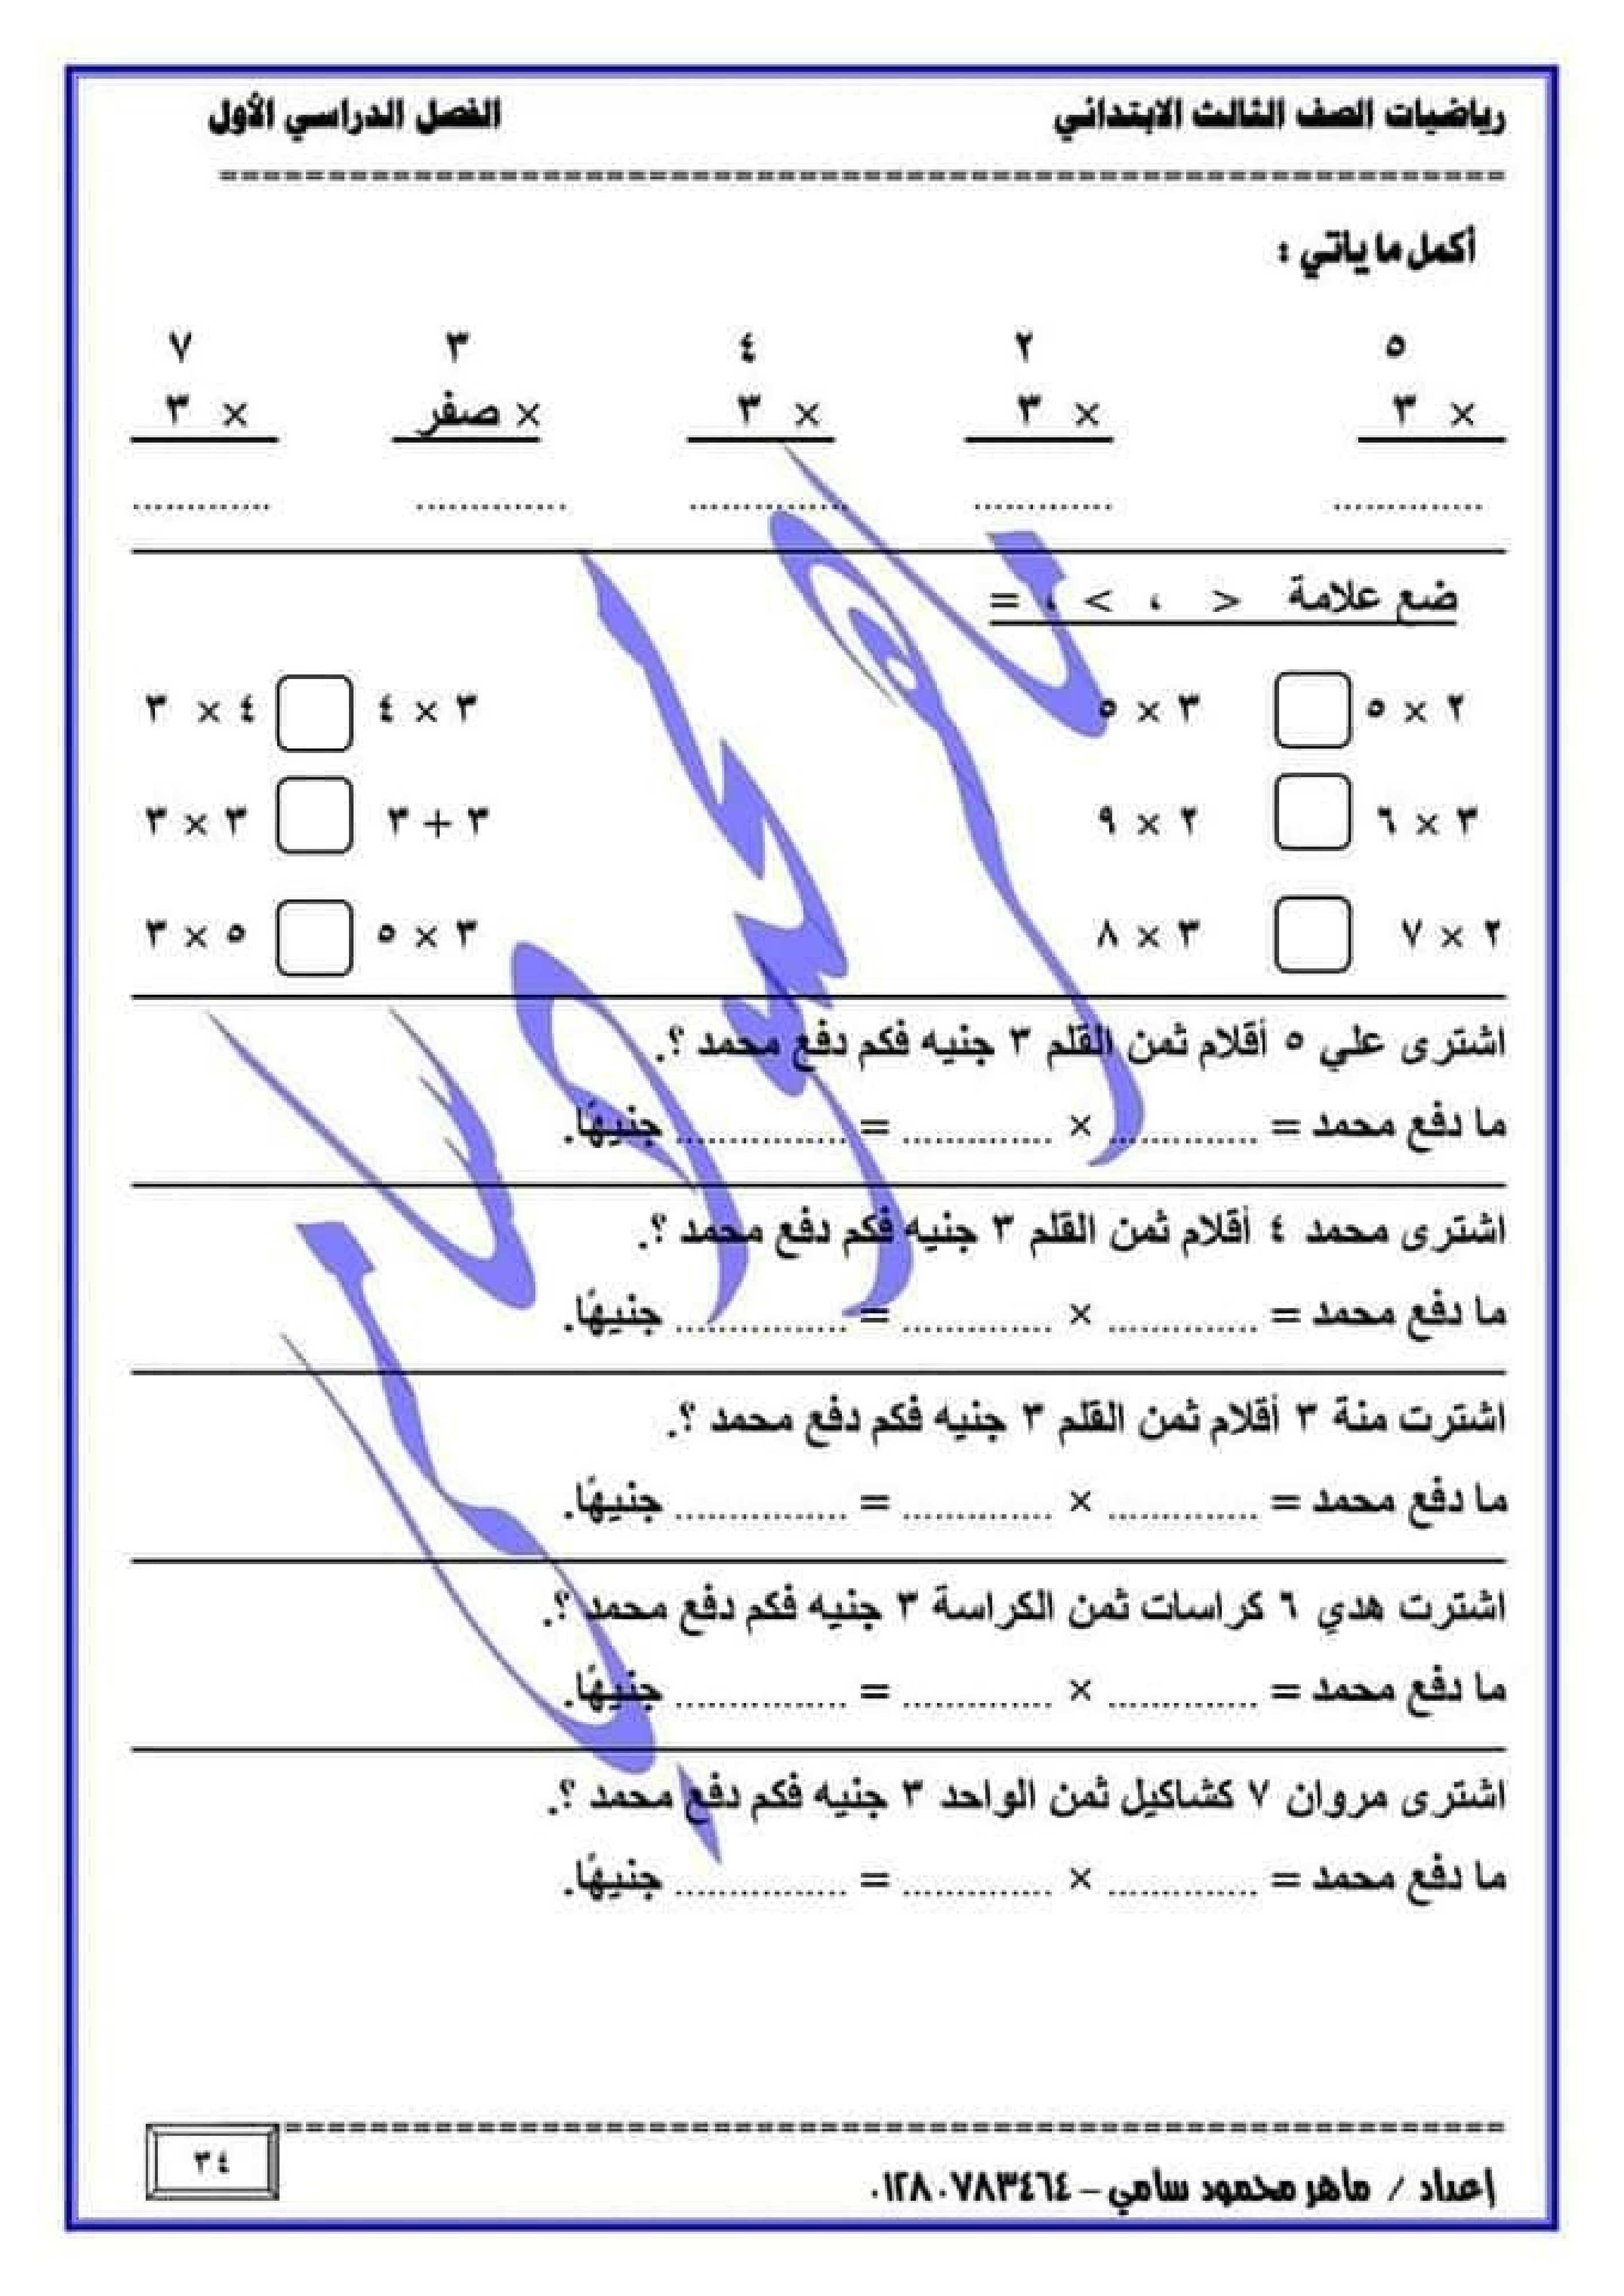 رياضيات الصف الثالث الابتدائي الفصل الدراسي الأول
أكمل ما ياتي :
٥ ٢ ٤ ٣ ٧
× ٣ × ٣ × ٣ × صفر × ٣
ضع علامة > ، < ، =
٢ × ٥ ٣ × ٥ ٣ × ٤ ٤ × ٣
٣ × ٦ ٢ × ٩ ٣ + ٣ ٣ × ٣
٢ × ٧ ٣ × ٨ ٣ × ٥ ٥ × ٣
اشترى علي ٥ أقلام ثمن القلم ٣ جنيه فكم دفع محمد ؟.
ما دفع محمد = ............. × ............. = ............... جنيهًا.
اشترى محمد ٤ أقلام ثمن القلم ٣ جنيه فكم دفع محمد ؟.
ما دفع محمد = ............. × ............. = ............... جنيهًا.
اشترت منة ٣ أقلام ثمن القلم ٣ جنيه فكم دفع محمد ؟.
ما دفع محمد = ............. × ............. = ............... جنيهًا.
اشترت هدي ٦ كراسات ثمن الكراسة ٣ جنيه فكم دفع محمد ؟.
ما دفع محمد = ............. × ............. = ............... جنيهًا.
اشترى مروان ٧ كشاكيل ثمن الواحد ٣ جنيه فكم دفع محمد ؟.
ما دفع محمد = ............. × ............. = ............... جنيهًا.
٣٤
إعداد / ماهر محمود سامي – ٠١٢٨٠٧٨٣٤٦٤